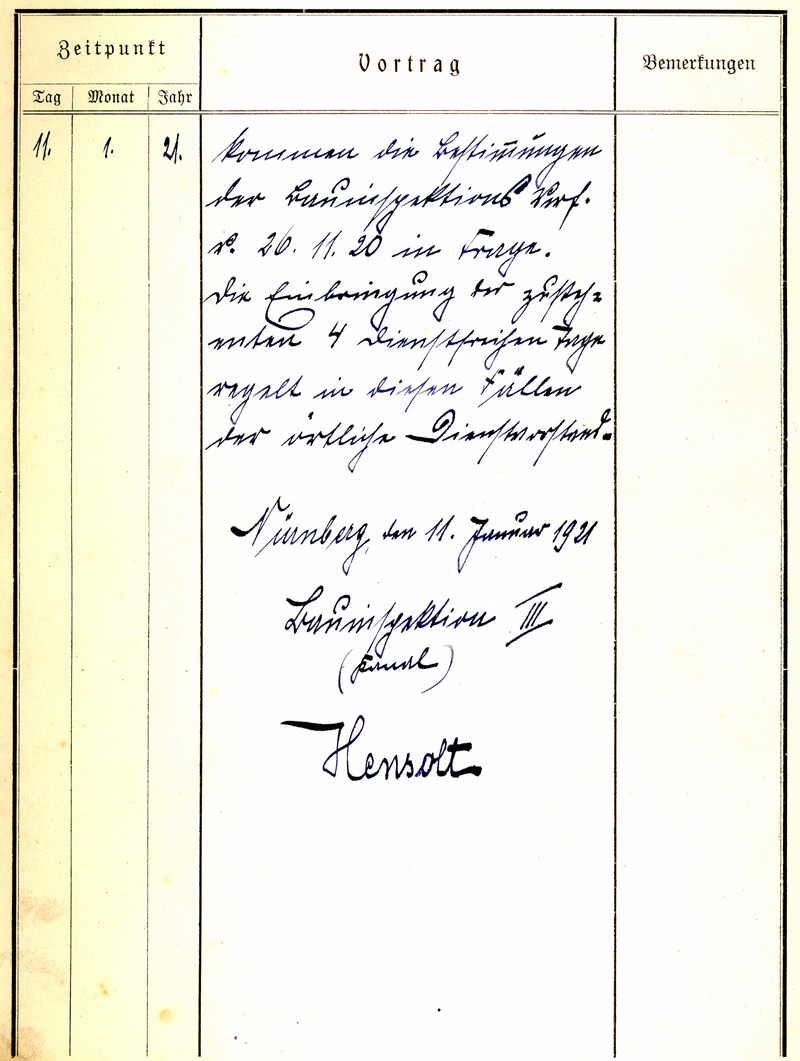 Zeitpunkt
Vortrag
Bemerkungen
Tag Monat Jahr
11. 1. 21. kommen die Bestim̅ungen
der Bauinspektions Verf.
v. 26. 11. 20 in Frage.
Die Einbringung der zusteh-
enten 4 dienstfreihen Tage
regelt in diesen Fällen
der örtliche Dienstvorstand.
Nürnberg, den 11. Januar 1921
Bauinspektion III
(Kanal)
Hensolt